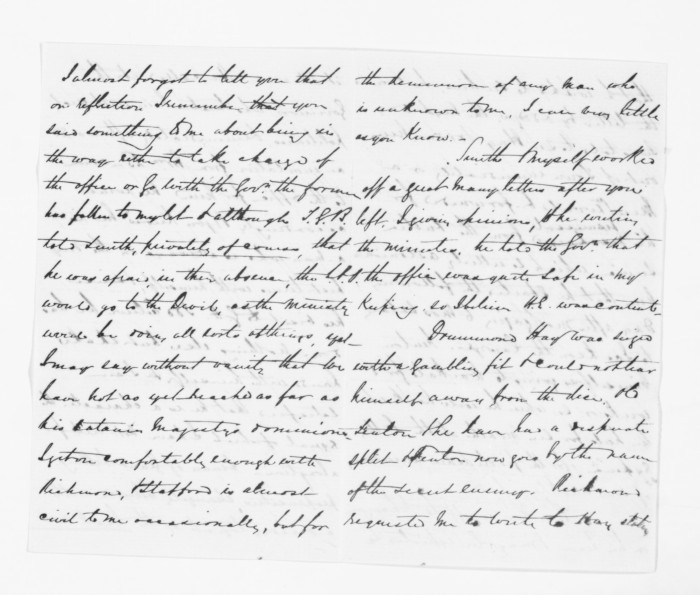 I almost forgot to tell you that
on reflection I remember that you
said something to me about being in
the way either to take charge of
the office or go with the Govr. the former
has fallen to my lot & although
told Smith, privately of course, that
he was afraid in their absence, the office
would go to the Devil, as the Ministry
would be doing all sorts of things, yet
I may say without vanity that we
have not as yet reached as far as
his Satanic Majesty's dominions
I get on comfortably enough with
Richmond, & Stafford is almost
civil to me occasionally, but for
the demeanor of any man who
is unknown to me, I care very little
as you know.
Smith & Myself worked
off a great many letters after you
left, I giving opinions, & he writing
the minutes, he told the Govr. that
the office was quite safe in my
Keeping so I believe H.E. was content
Drummond Hay was seized
with a gambling fit & could not tear
himself away from the dice. He
& he have had a desperate
split & now goes by the name
of the secret enemy. Richmond
requested me to write to Hay